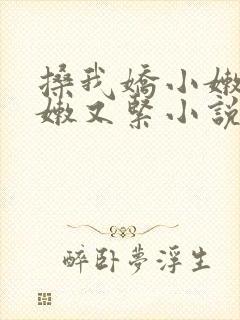 搡我嬌小嫩
嫩又緊小說
醉卧夢浮生